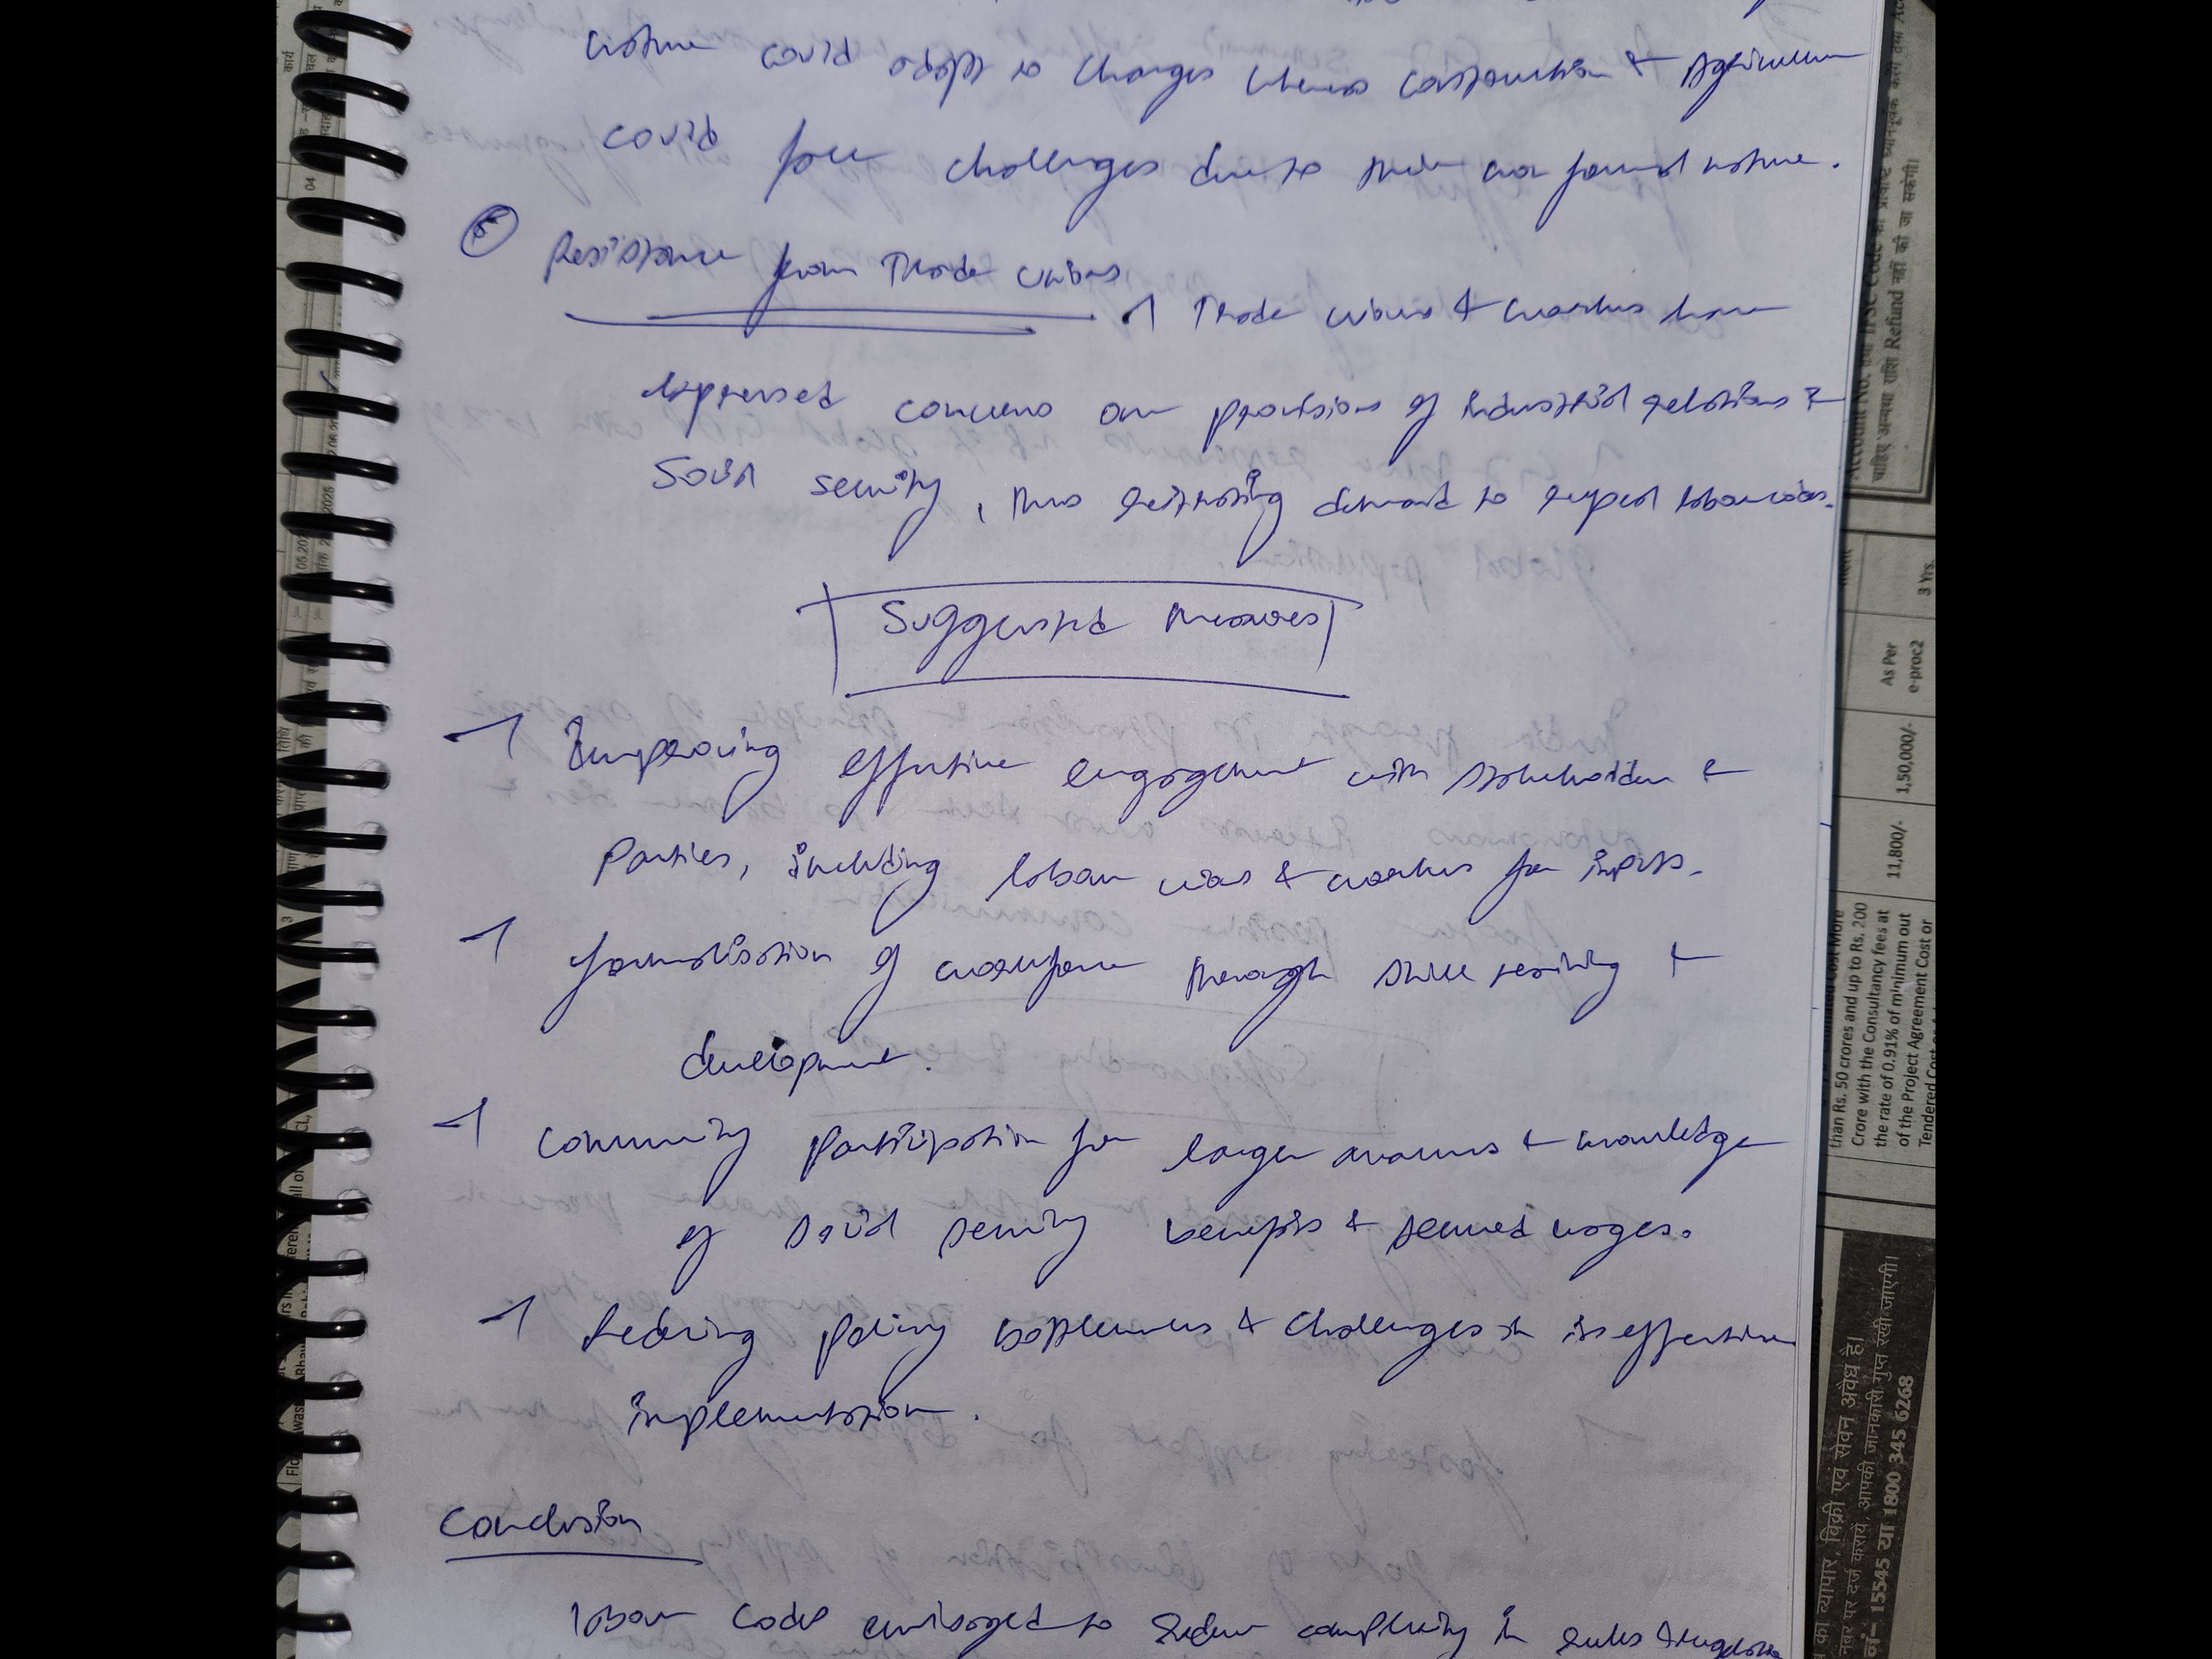 could adapt to changes whereas construction & Agriculture
could face challenges due to their non formal nature.
⑤ Resistance from Trade unions
→ Trade unions & workers have
expressed concerns over provisions of industrial relations &
Social security, thus reiterating demand to repeal labour codes.
Suggested Measures
→ Improving effective engagement with stakeholders &
Parties, including labour unions & workers for inputs.
→ formalisation of workforce through skill training &
development.
→ Community participation for larger awareness & knowledge
of social security benefits & secured wages.
→ Reducing policy bottlenecks & challenges in its effective
implementation.
Conclusion
labour Codes envisaged to reduce complexity in rules &
Account No. तथा IFSC Code
चाहिए अन्यथा राशि Refund नहीं की जा सकेगी।
3 Yrs.
As Per
e-proc2
1,50,000/-
11,800/-
than Rs. 50 crores and up to Rs. 200
Crore with the Consultancy fees at
the rate of 0.91% of minimum out
of the Project Agreement Cost or
Tendered Cost
का व्यापार, विक्री एवं सेवन अवैध है।
नंबर पर दर्ज करायें, आपकी जानकारी गुप्त रखी जाएगी।
नं- 15545 या 1800 345 6268